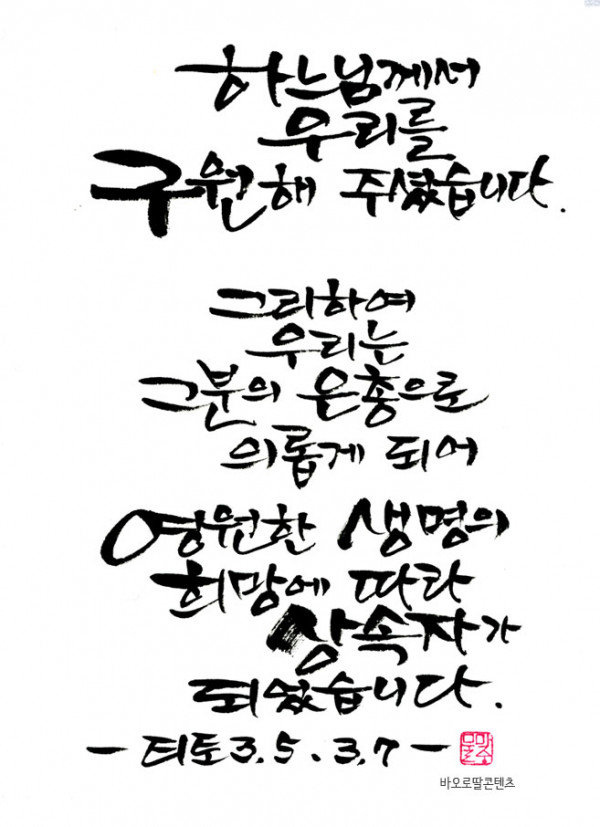 하느님께서
우리를
구원해 주셨습니다.
그리하여
우리는
그분의 은총으로
의롭게 되어
영원한 생명의
희망에 따라
상속자가
되었습니다.
- 티토 3,5. 3,7 -
바오로딸콘텐츠